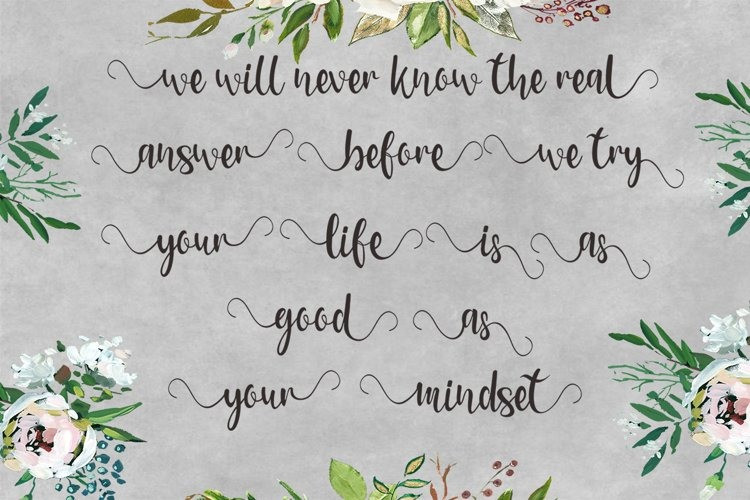 we will never know the real
answer before we try
your life is as
good as
your mindset